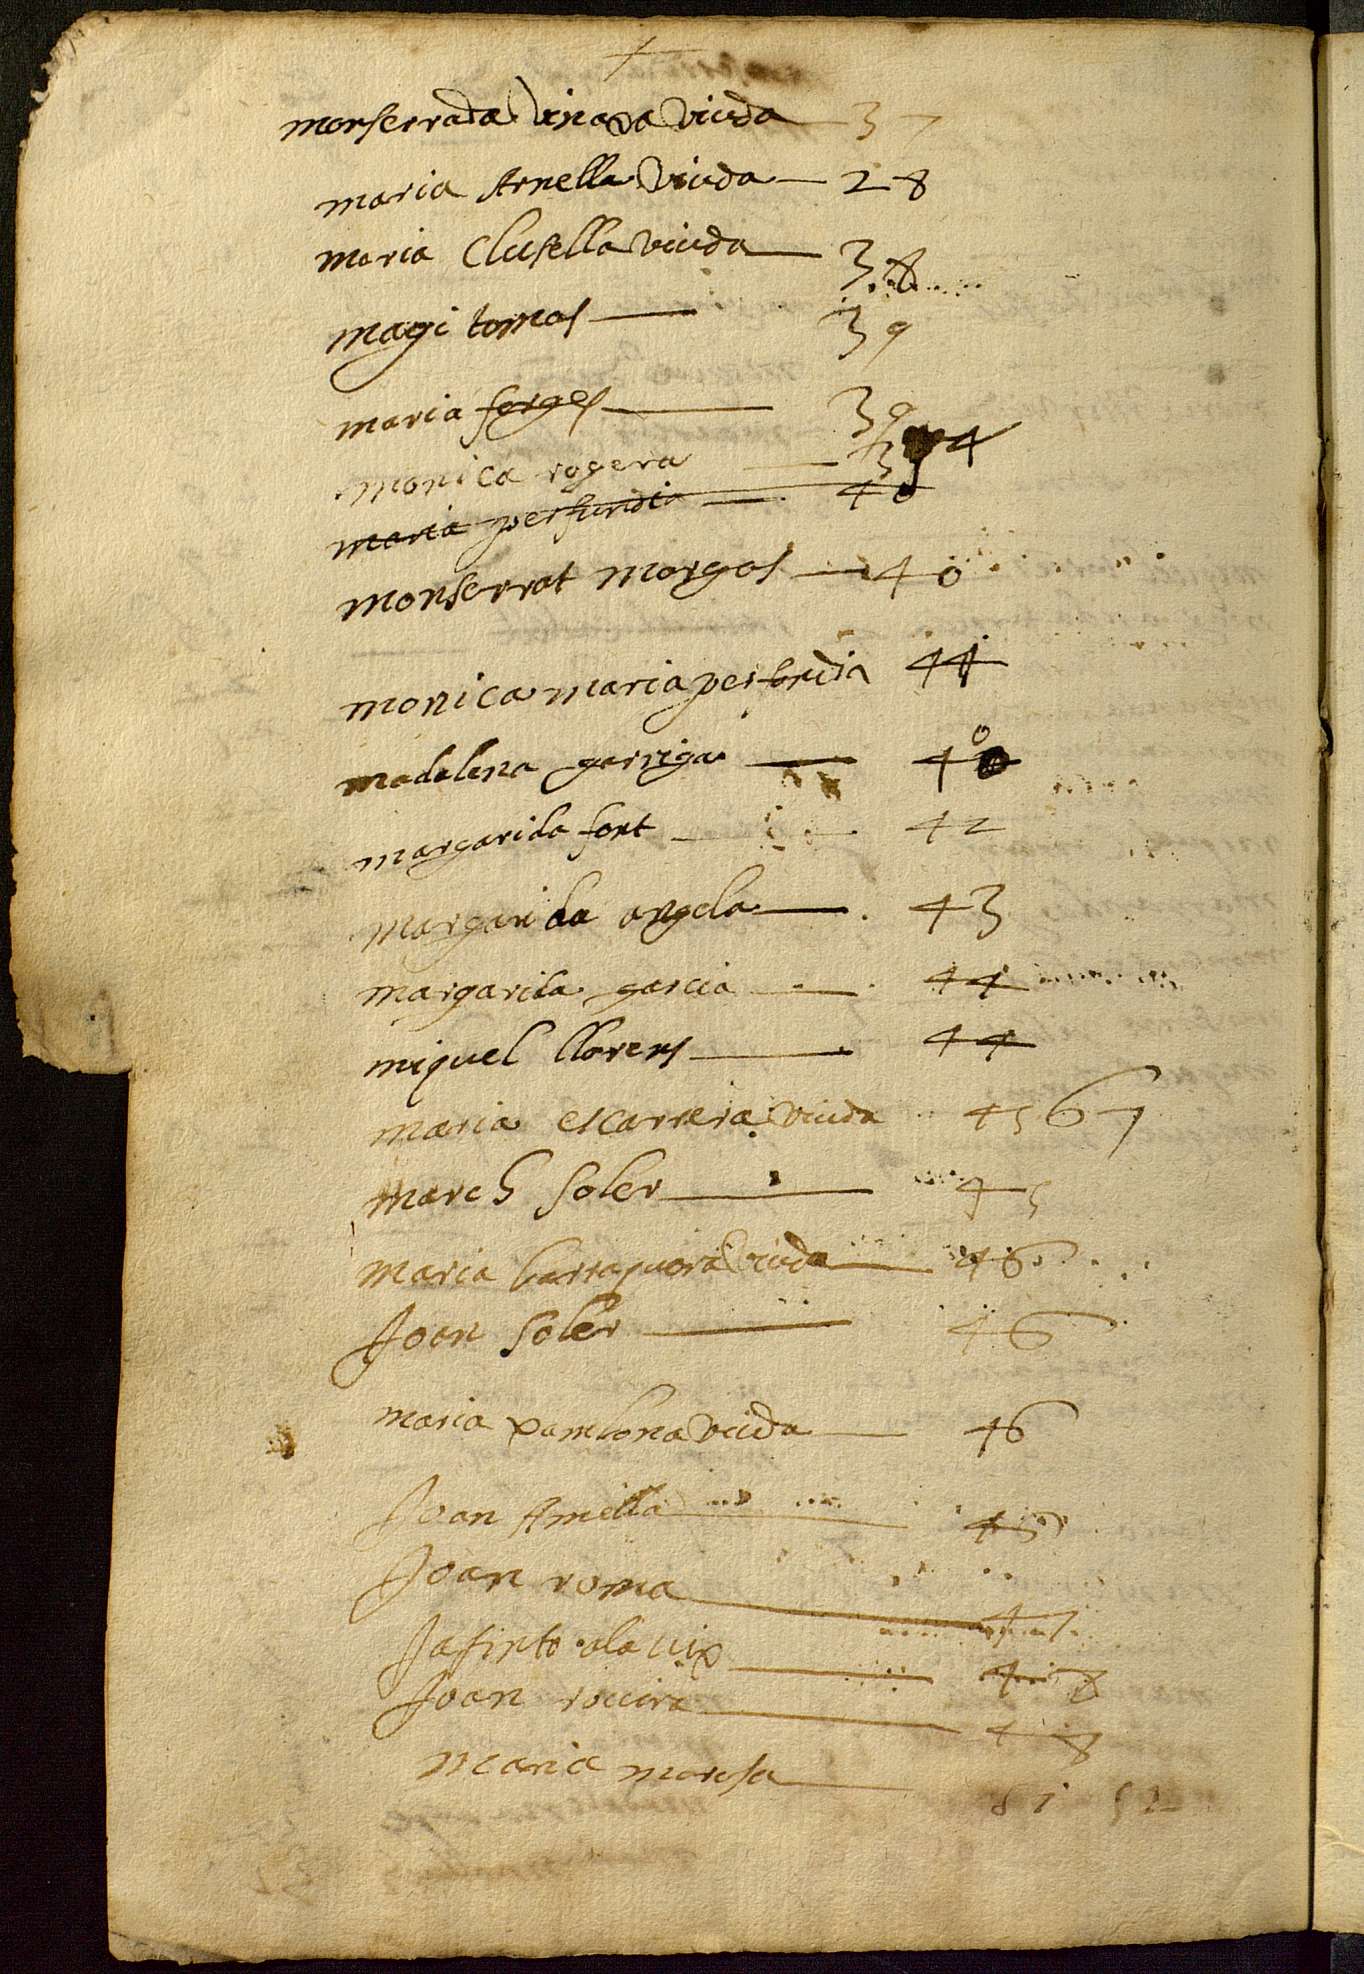 monserrada vinava viuda 37
maria Arnella viuda 28
maria Clusella viuda 38
magi tomas 39
maria forges 39
monica rogera 39 4
maria perfundia 40
monserrat morgas 40
monica maria perfondia 44
madalena garriga 40
margarida font 42
margarida angela 43
margarida garcia 44
miquel llorens 44
maria escarrera viuda 45 67
march soler 45
maria barraquera viuda 46
Joan soler 46
maria pamlona viuda 46
Joan Amella 45
Joan roma 47
Jasinto alavix 48
Joan rovira 48
maria maresa 51 52